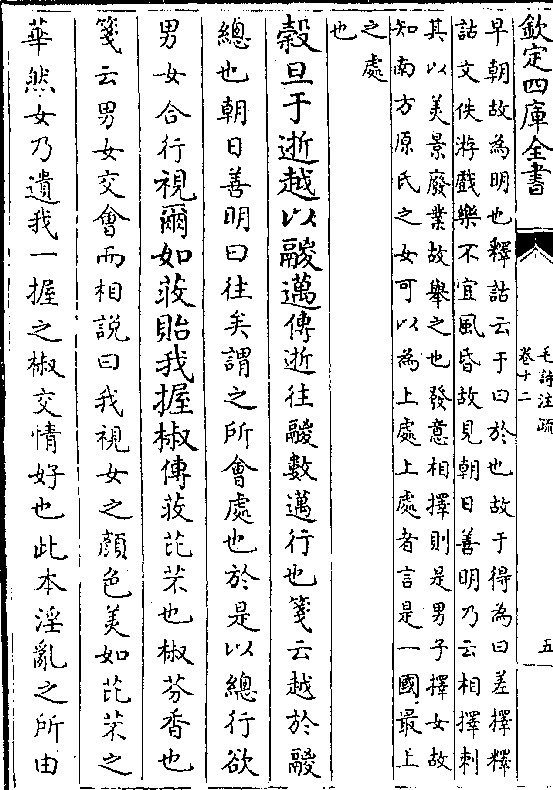 欽定四庫全書
毛詩注疏
卷十二
五
早朝故為明也釋詁云于曰於也故于得為曰差擇釋
詁文佚游戲樂不宜風昏故見朝日善明乃云相擇刺
其以美景廢業故舉之也發意相擇則是男子擇女故
知南方原氏之女可以為上處上處者言是一國最上
之處
也
穀旦于逝越以鬷邁傳逝往鬷數邁行也箋云越於鬷
總也朝旦善明曰往矣謂之所會處也於是以總行欲
男女合行視爾如荍貽我握椒傳荍芘芣也椒芬香也
箋云男女交會而相說曰我視女之顏色美如芘芣之
華然女乃遺我一握之椒交情好也此本淫亂之所由